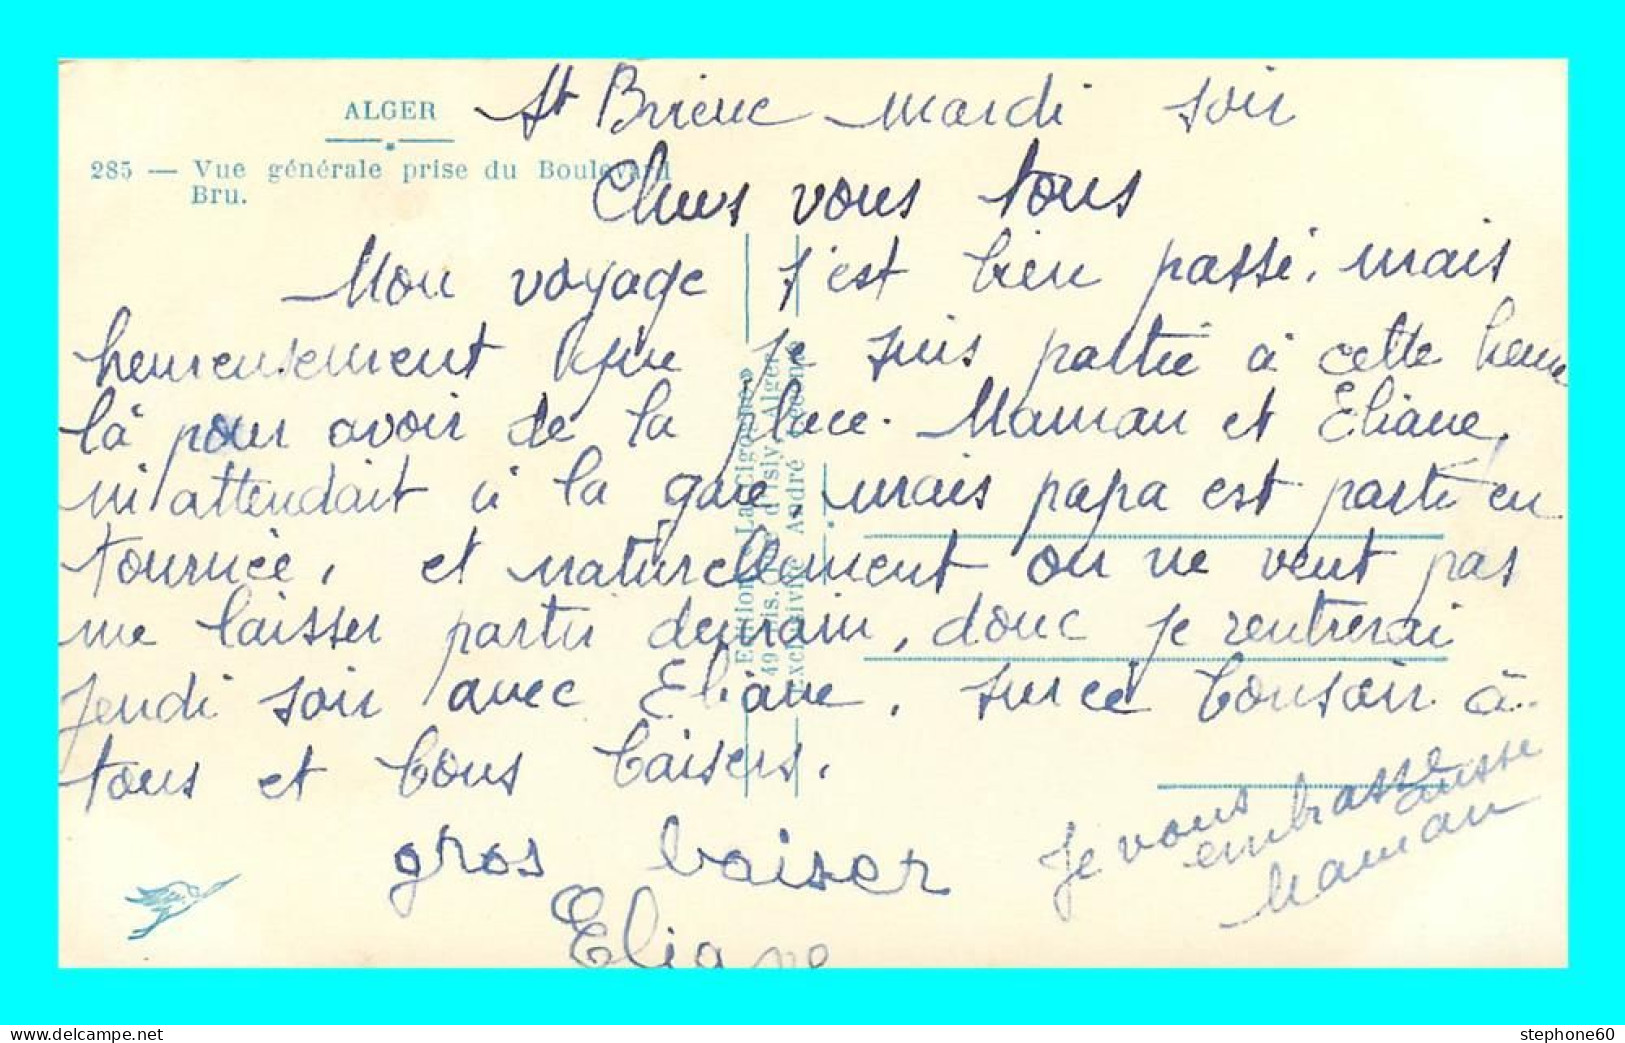 ALGER
285 — Vue générale prise du Boulevard
Bru.
St Brieuc mardi soir
Chers vous tous
Mon voyage s'est bien passé, mais
heureusement que je suis partie à cette heure
là pour avoir de la place. Maman et Eliane,
m'attendait à la gare mais papa est parti en
tournée, et naturellement on ne veut pas
me laisser partir demain, donc je rentrerai
jeudi soir avec Eliane, sur ce bonsoir à
tous et bons baisers.
gros baiser
Eliane
Je vous
embrasse
aussi
Maman
Editions « La Cigogne »
49 bis, d'Isly - Alger
Exclusivité André
delcampe.net
stephone60